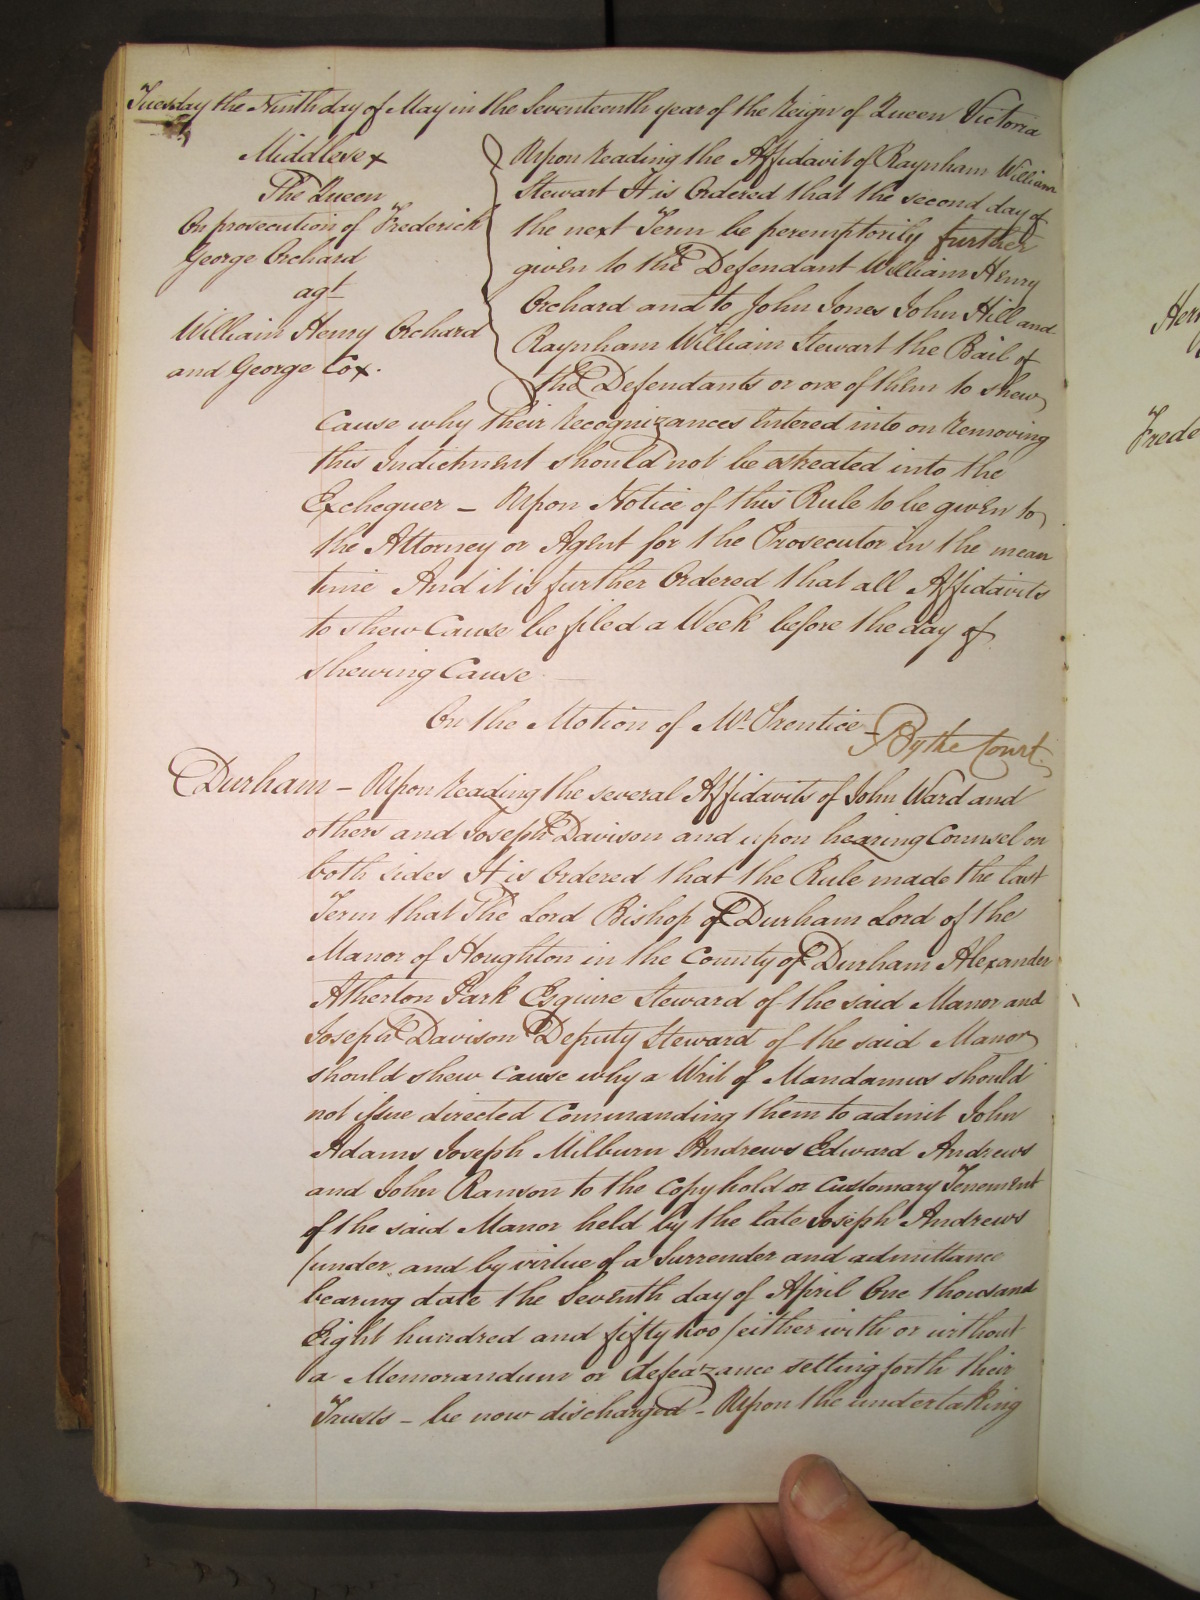 Tuesday the Ninth day of May in the Seventeenth year of the Reign of Queen Victoria
Middlesex
The Queen
On prosecution of Frederick
George Orchard
agt
William Henry Orchard
and George Cox.
Upon reading the Affidavit of Raynham William
Stewart It is Ordered that the second day of
the next Term be peremptorily further
given to the Defendant William Henry
Orchard and to John Jones John Hill and
Raynham William Stewart the Bail of
the Defendants or one of them to shew
Cause why their Recognizances Entered into on removing
this Indictment should not be estreated into the
Exchequer – Upon Notice of this Rule to be given to
the Attorney or Agent for the Prosecutor in the mean
time And it is further Ordered that all Affidavits
to shew Cause be filed a Week before the day of
shewing Cause
On the Motion of Mr. Prentice
By the Court.
Durham – Upon reading the several Affidavits of John Ward and
others and Joseph Davison and upon hearing Counsel on
both sides It is Ordered that the Rule made the last
Term that The Lord Bishop of Durham Lord of the
Manor of Houghton in the County of Durham Alexander
Atherton Park Esquire Steward of the said Manor and
Joseph Davison Deputy Steward of the said Manor
should shew cause why a Writ of Mandamus should
not issue directed Commanding them to admit John
Adams Joseph Milburn Andrews Edward Andrews
and John Ranson to the Copyhold or Customary Tenement
of the said Manor held by the late Joseph Andrews
/under and by virtue of a Surrender and admittance
bearing date the Seventh day of April One thousand
Eight hundred and fifty two/ either with or without
a Memorandum or defeazance setting forth their
Trusts – be now discharged – Upon the undertaking
Frede